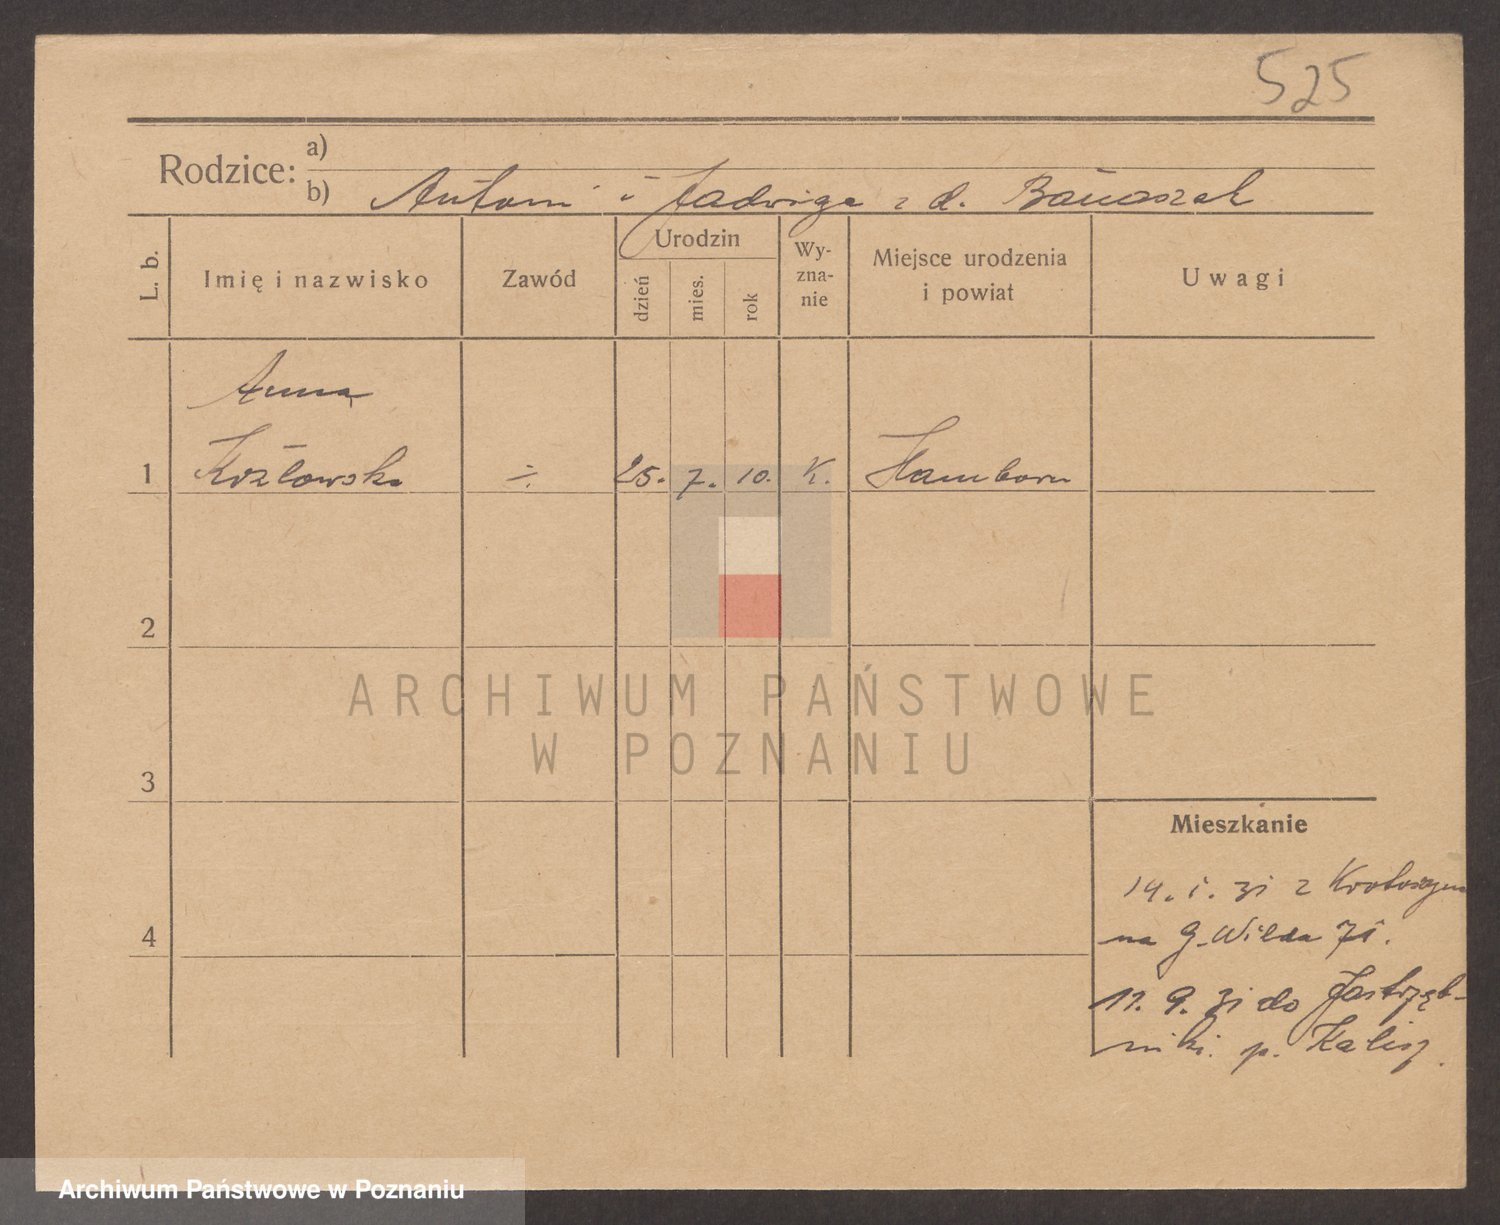 525
Rodzice: a)
b) Antoni i Jadwiga z d. Banaszak
L. b.
Imię i nazwisko
Zawód
Urodzin
dzień
mies.
rok
Wy-
zna-
nie
Miejsce urodzenia
i powiat
Uwagi
Anna
1 Koźlowska ÷ 25. 7. 10. K. Hamborn
2
ARCHIWUM PAŃSTWOWE
W POZNANIU
3
Mieszkanie
14. i. 31 z Krotoszyna
na G. Wilda 71.
4
11. 9. 31 do Jastrzęb-
niki. p. Kalisz.
Archiwum Państwowe w Poznaniu